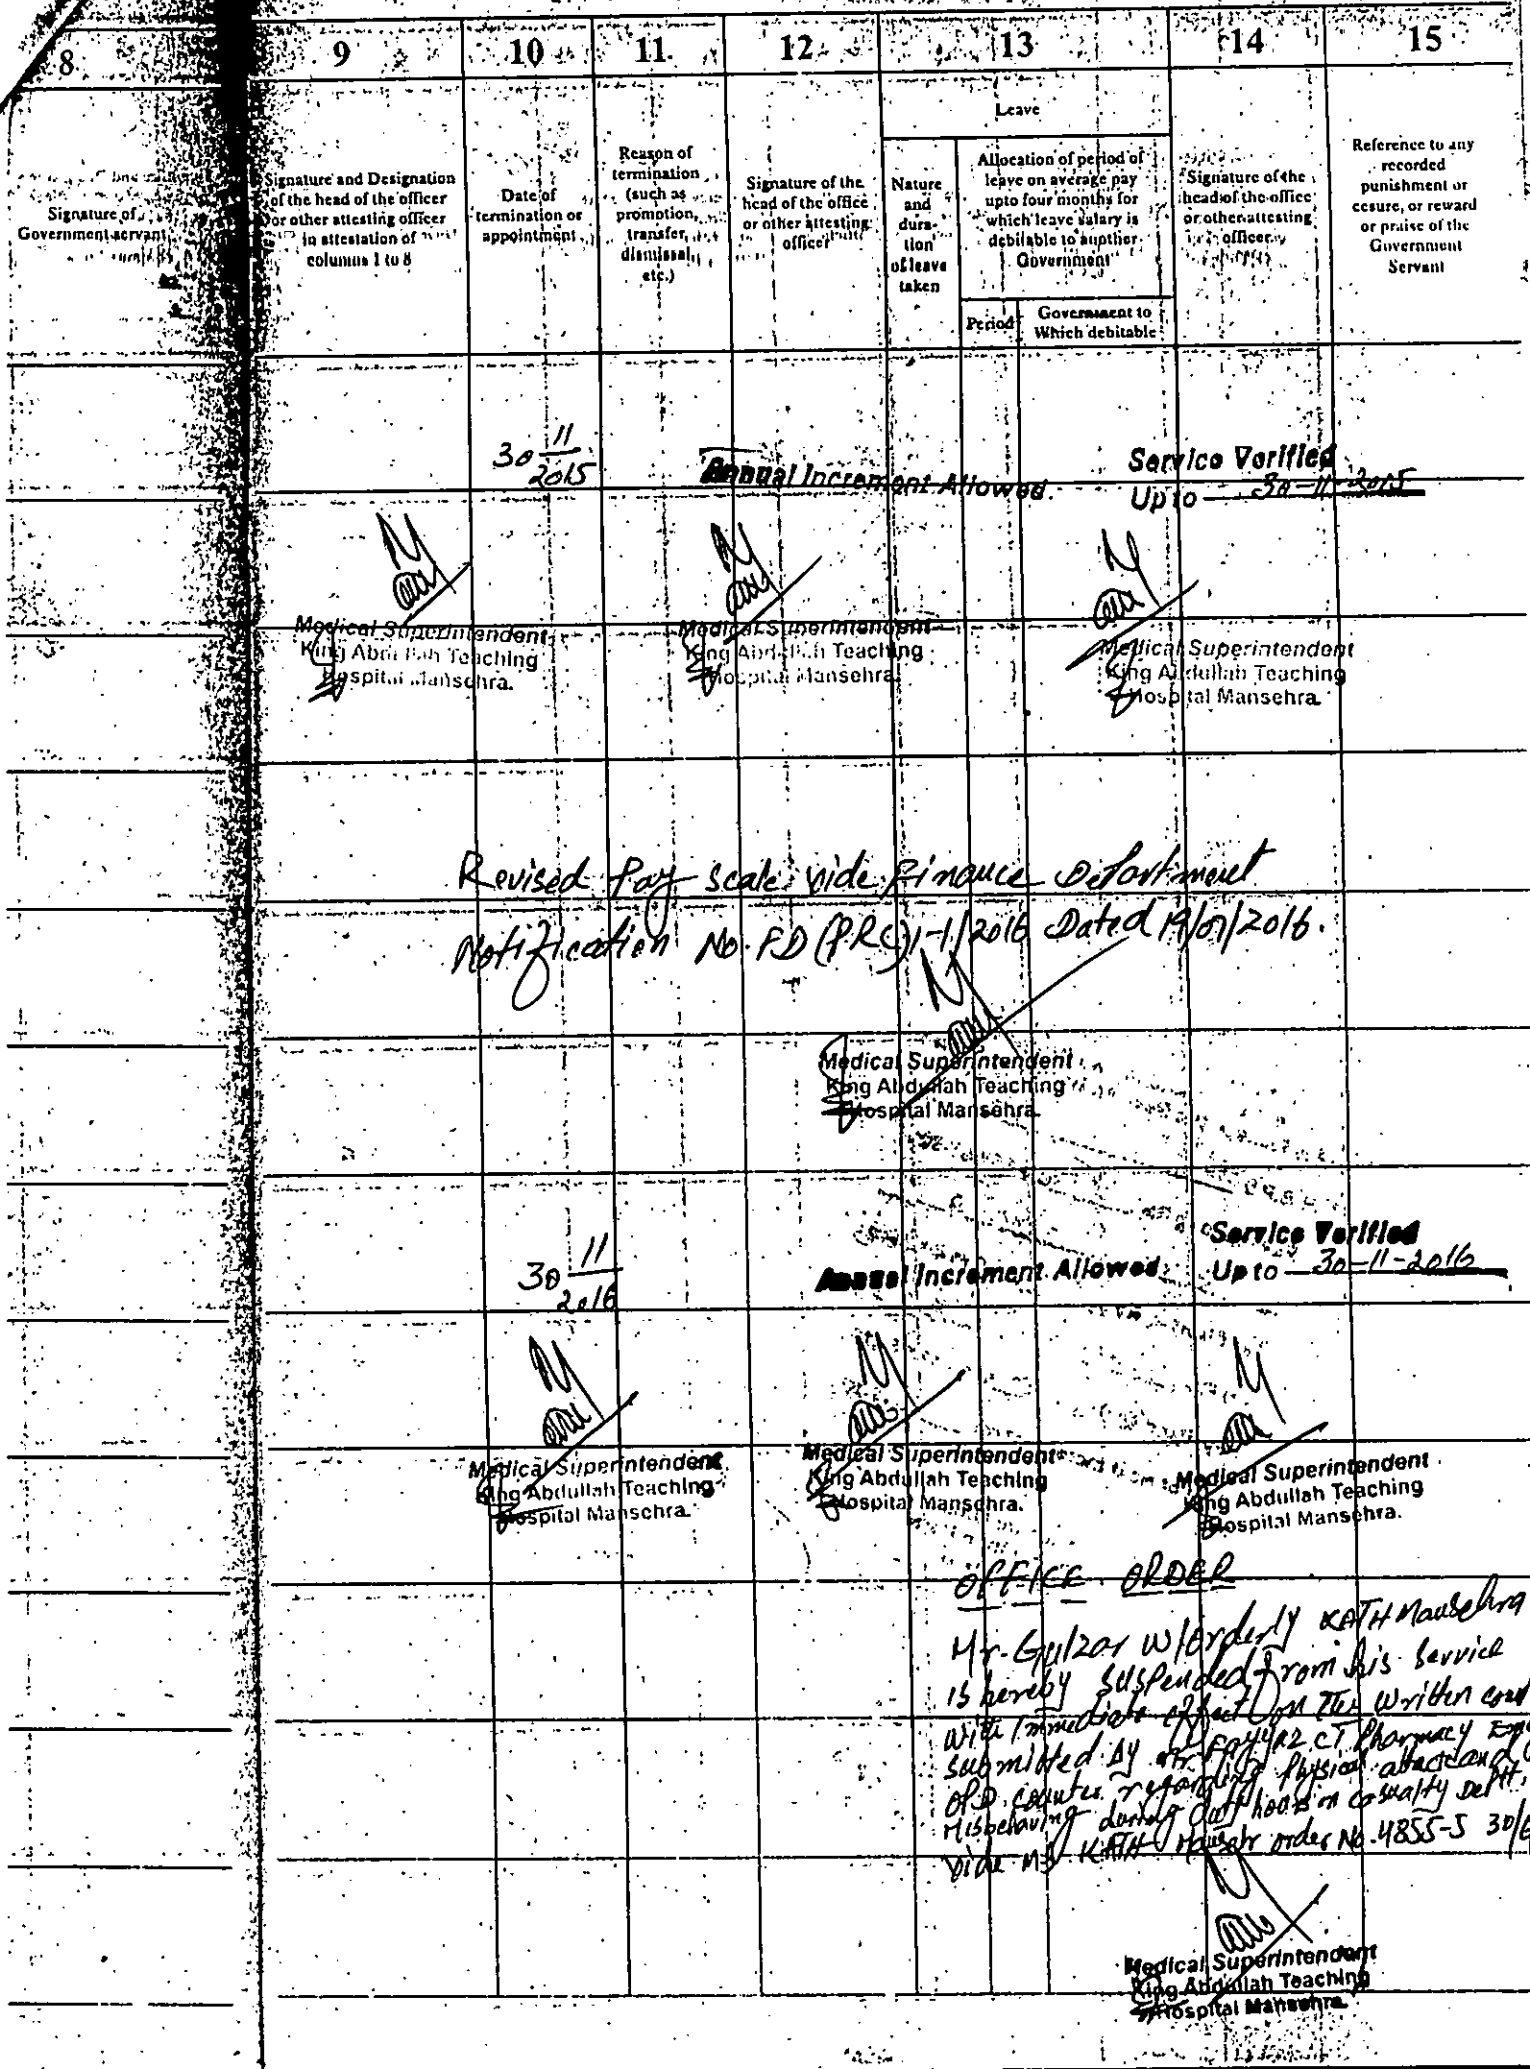 8 9 10 11 12 13 14 15
Signature of
Government servant
Signature and Designation
of the head of the officer
or other attesting officer
in attestation of
columns 1 to 8
Date of
termination or
appointment
Reason of
termination
(such as
promotion,
transfer,
dismissal,
etc.)
Signature of the
head of the office
or other attesting
officer
Leave
Nature
and
dura-
tion
of leave
taken
Allocation of period of
leave on average pay
upto four months for
which leave salary is
debilable to another
Government
Period
Government to
Which debitable
Signature of the
head of the office
or other attesting
officer
Reference to any
recorded
punishment or
cesure, or reward
or praise of the
Government
Servant
30 11/2015
Annual Increment Allowed.
Service Verified
Up to 30-11-2015
Medical Superintendent
King Abdullah Teaching
Hospital Mansehra.
Medical Superintendent
King Abdullah Teaching
Hospital Mansehra.
Medical Superintendent
King Abdullah Teaching
Hospital Mansehra.
Revised Pay scale vide Finance Department
Notification No. FD (PRC) 1-1/2016 Dated 19/07/2016.
Medical Superintendent
King Abdullah Teaching
Hospital Mansehra.
30 11/2016
Annual Increment Allowed
Service Verified
Up to 30-11-2016
Medical Superintendent
King Abdullah Teaching
Hospital Mansehra.
Medical Superintendent
King Abdullah Teaching
Hospital Mansehra.
Medical Superintendent
King Abdullah Teaching
Hospital Mansehra.
OFFICE ORDER
Mr. Gulzar W/Orderly KATH Mansehra
is hereby suspended from his service
with immediate effect on the written
submitted by Mr Fayyaz CT Pharmacy
OPD counter regarding Physical attack and
Misbehaving during duty hours in casualty Deptt.
vide MS KATH order No. 4855-5 30/6
Medical Superintendent
King Abdullah Teaching
Hospital Mansehra.